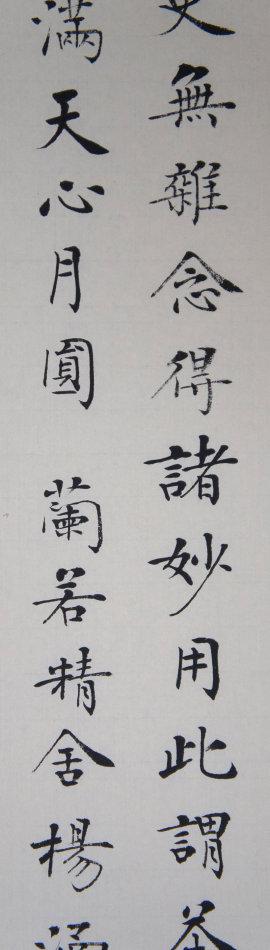 無雜念得諸妙用此謂
滿天心月圓 蘭若精舍楊